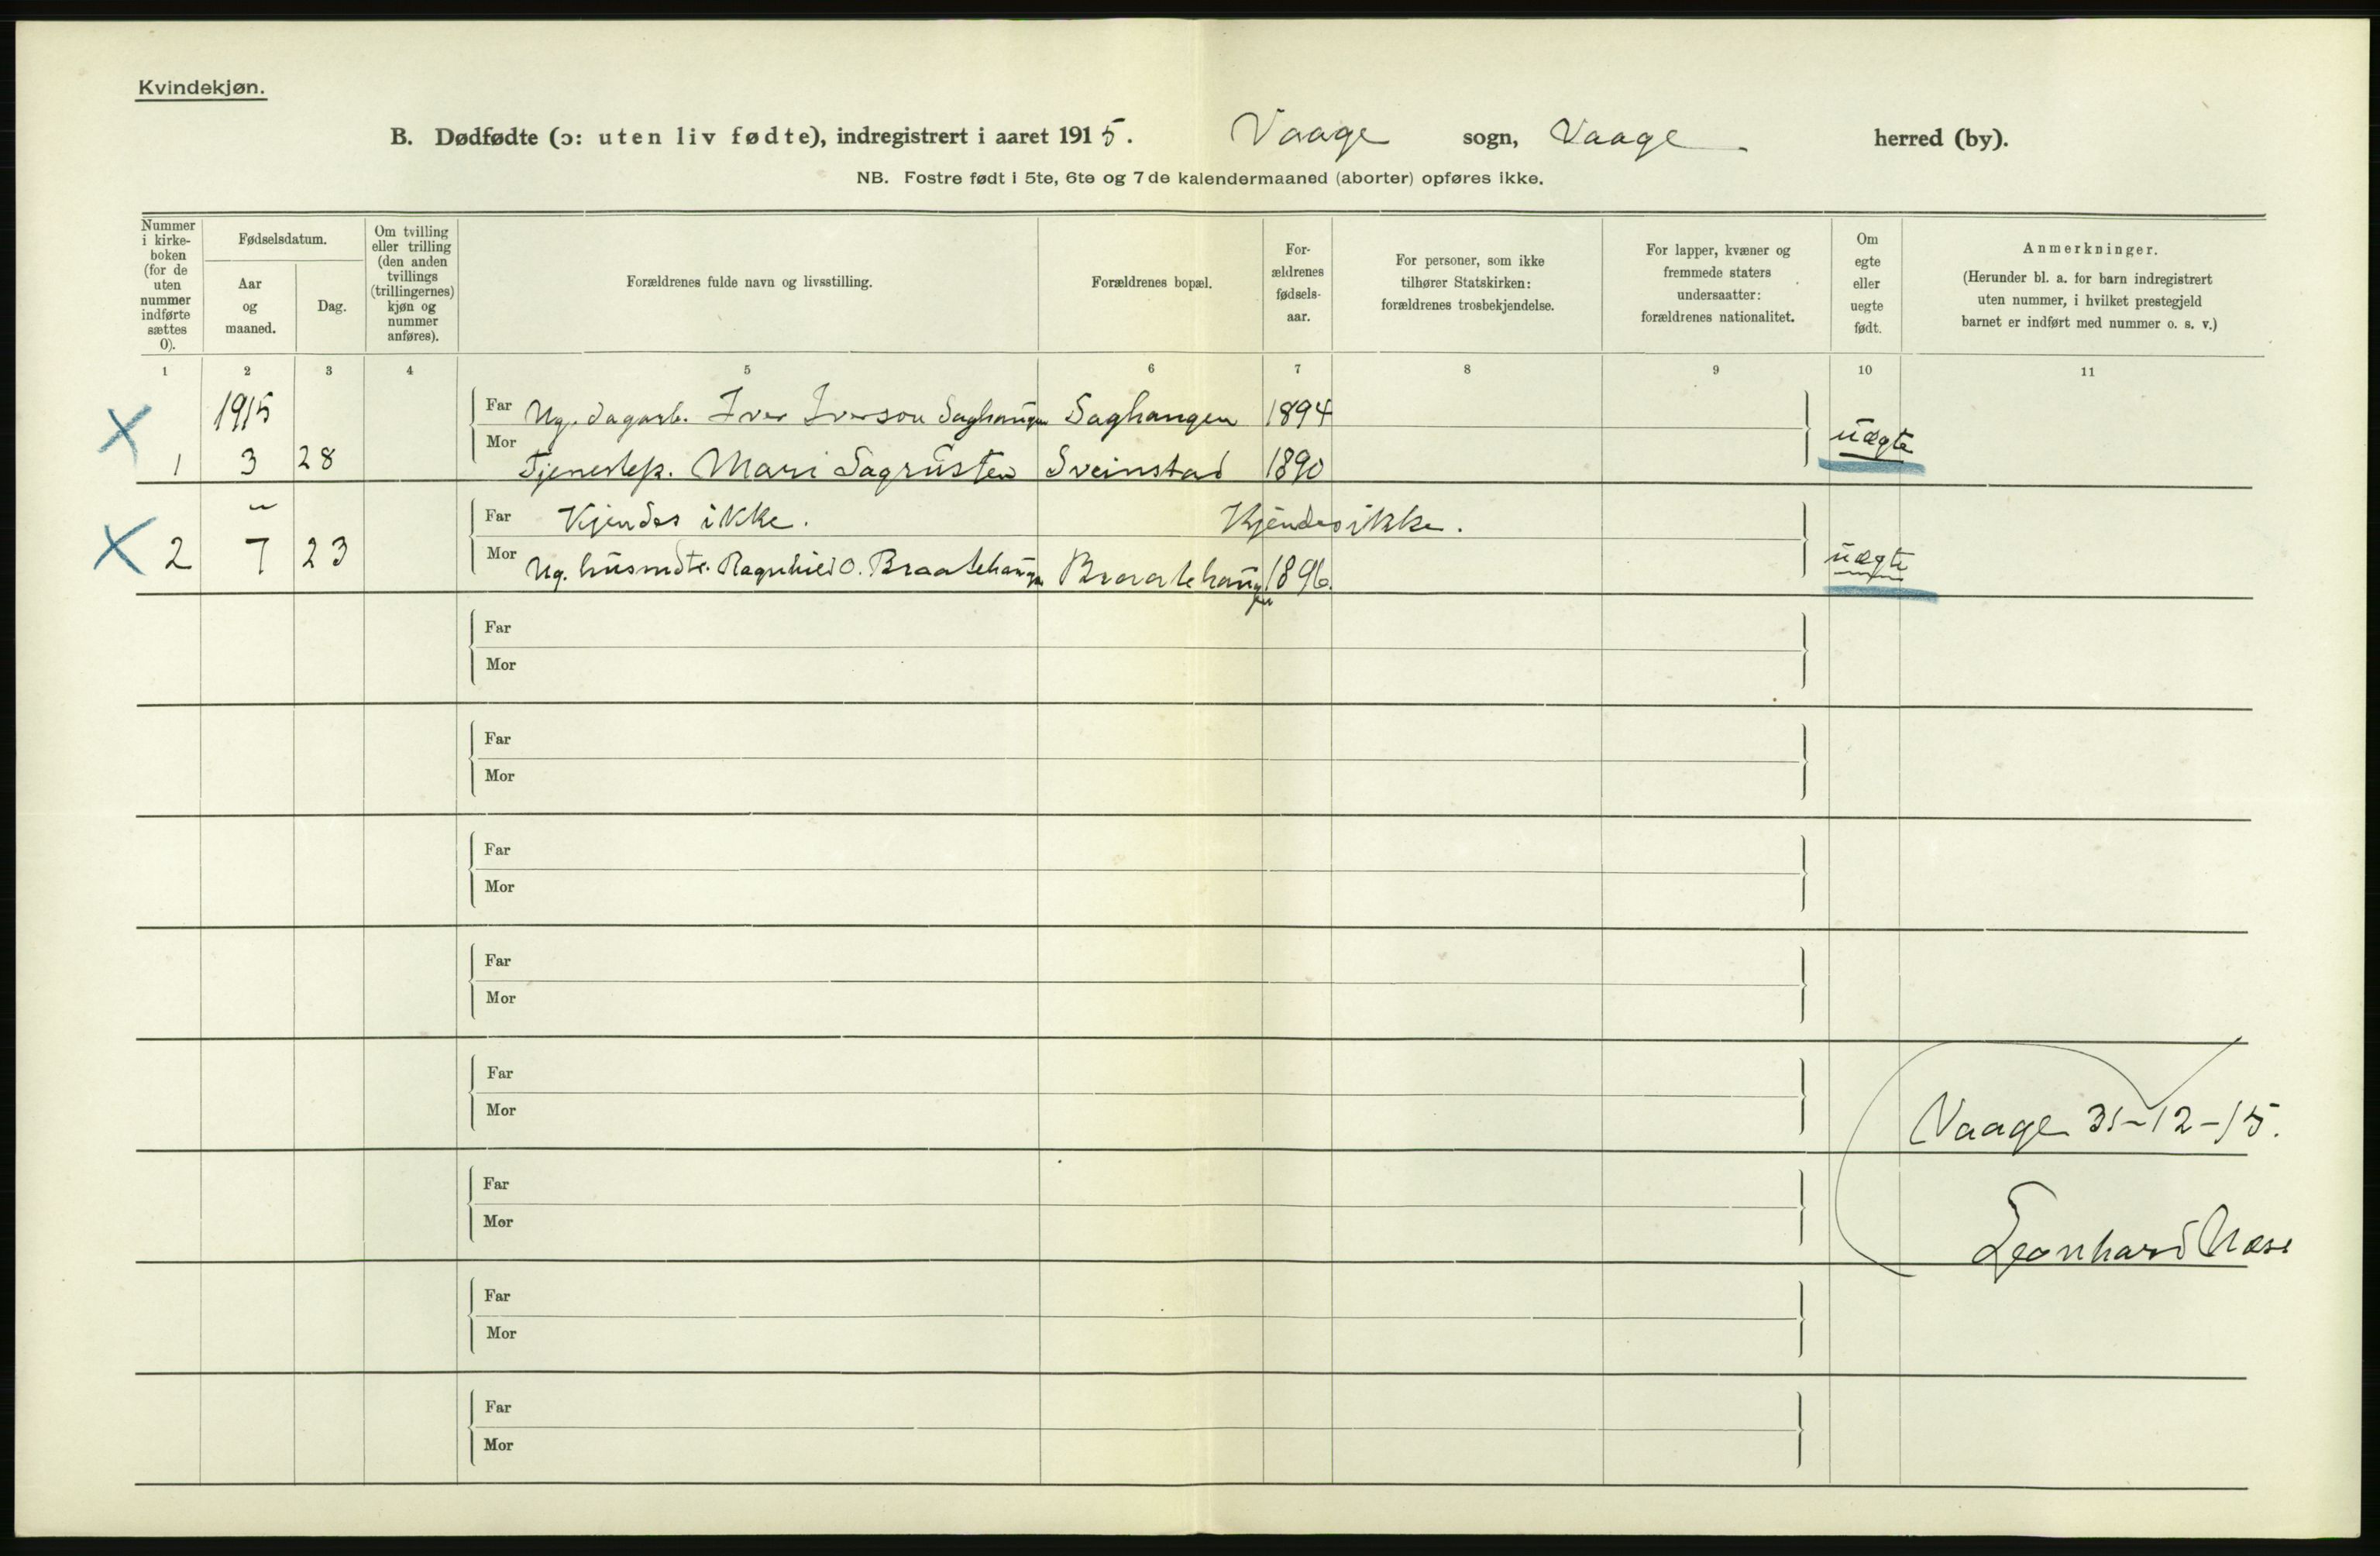 Kvindekjøn.
B. Dødfødte (ɔ: uten liv fødte), indregistrert i aaret 1915. Vaage sogn, Vaage herred (by).
NB. Fostre født i 5te, 6te og 7de kalendermaaned (aborter) opføres ikke.
Nummer
i kirke-
boken
(for de
uten
nummer
indførte
sættes
0).
Fødselsdatum.
Aar
og
maaned.
Dag.
Om tvilling
eller trilling
(den anden
tvillings
(trillingernes)
kjøn og
nummer
anføres).
Forældrenes fulde navn og livsstilling.
Forældrenes bopæl.
For-
ældrenes
fødsels-
aar.
For personer, som ikke
tilhører Statskirken:
forældrenes trosbekjendelse.
For lapper, kvæner og
fremmede staters
undersaatter:
forældrenes nationalitet.
Om
egte
eller
uegte
født.
Anmerkninger.
(Herunder bl. a. for barn indregistrert
uten nummer, i hvilket prestegjeld
barnet er indført med nummer o. s. v.)
1 2 3 4 5 6 7 8 9 10 11
1915 Far Ug. dagarb. Iver Iverson Saghaugen Saghaugen 1894
X 1 3 28 Mor Tjenestep. Mari Sagrusten Sveinstad 1890 uægte
" Far Kjendes ikke. Kjendes ikke.
X 2 7 23 Mor Ug. husmdtr. Ragnhild O. Braatehaugen Braatehaugen 1896. uægte
Far
Mor
Far
Mor
Far
Mor
Far
Mor
Far
Mor
Vaage 31-12-15.
Far
Mor
Leonhard Næss
Far
Mor
Far
Mor